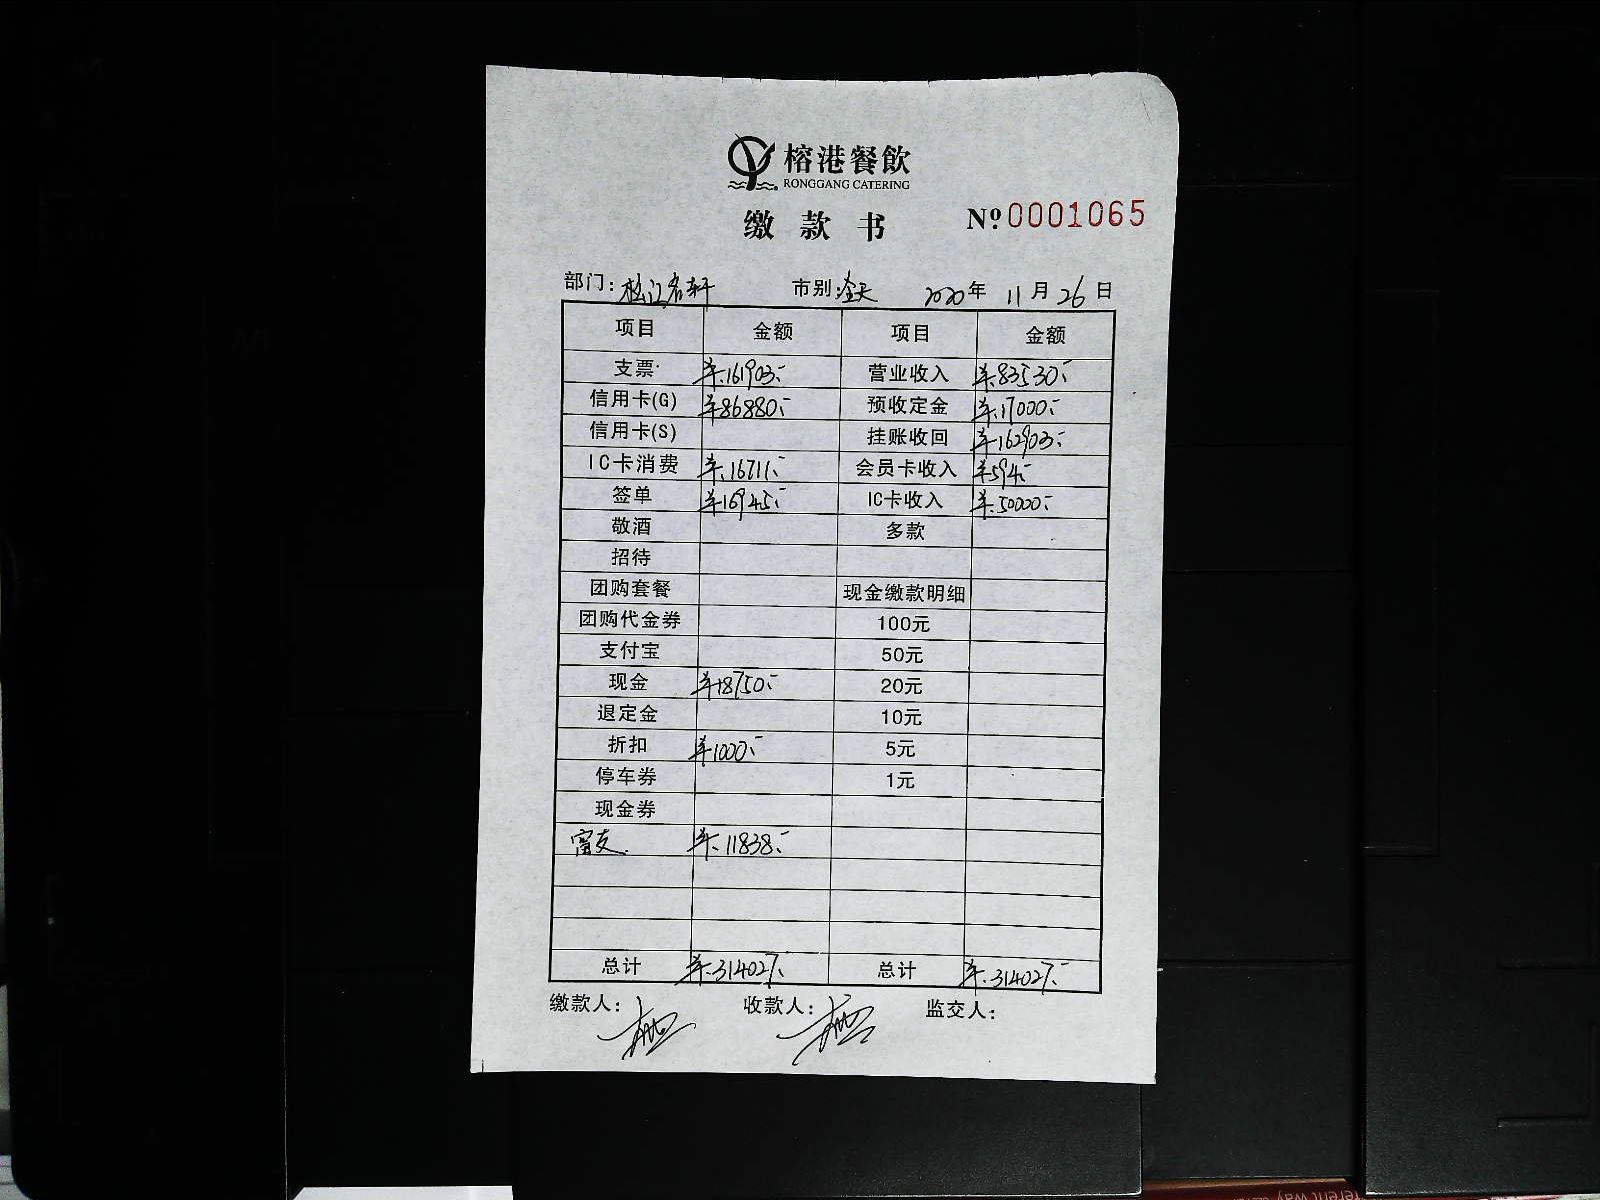 榕港餐飲
RONGGANG CATERING
缴款书 Nº 0001065
部门: 松江名轩 市别: 全天 2020年 11月 26日
项目 金额 项目 金额
支票 ¥161903.- 营业收入 ¥83530.-
信用卡(G) ¥86880.- 预收定金 ¥17000.-
信用卡(S) 挂账收回 ¥162903.-
IC卡消费 ¥16711.- 会员卡收入 ¥594.-
签单 ¥16945.- IC卡收入 ¥50000.-
敬酒 多款
招待
团购套餐 现金缴款明细
团购代金券 100元
支付宝 50元
现金 ¥18750.- 20元
退定金 10元
折扣 ¥1000.- 5元
停车券 1元
现金券
富友. ¥11838.-
总计 ¥314027.- 总计 ¥314027.-
缴款人: 收款人: 监交人: